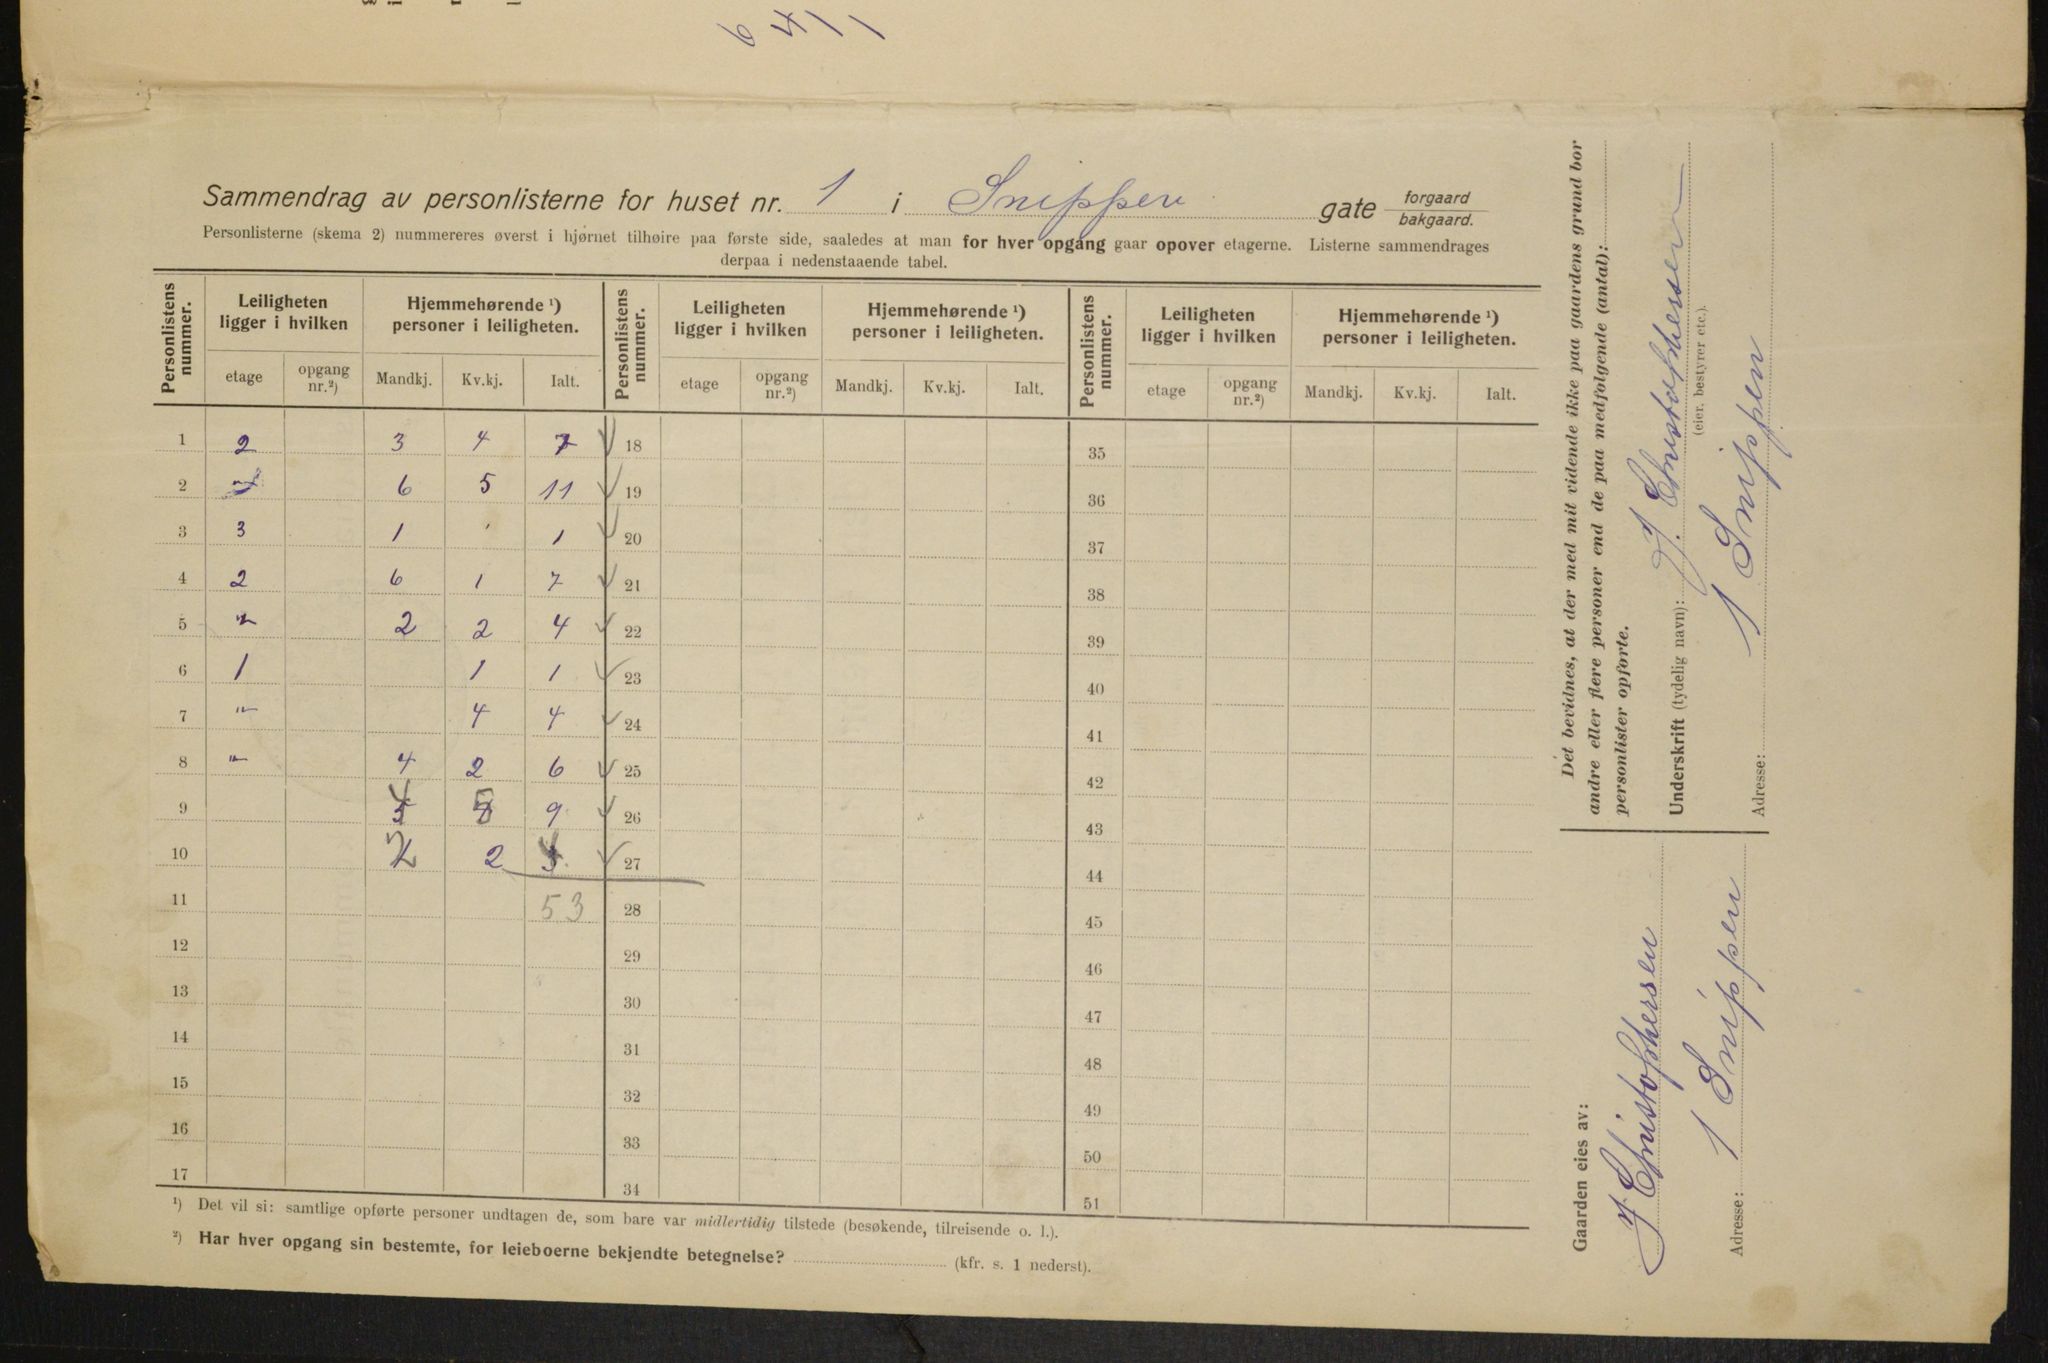 6 4 1 1
Sammendrag av personlisterne for huset nr. 1 i Snippen gate forgaard / bakgaard.
Personlisterne (skema 2) nummereres øverst i hjørnet tilhøire paa første side, saaledes at man for hver opgang gaar opover etagerne. Listerne sammendrages
derpaa i nedenstaaende tabel.
Personlistens nummer. Leiligheten ligger i hvilken Hjemmehørende ¹) personer i leiligheten. Personlistens nummer. Leiligheten ligger i hvilken Hjemmehørende ¹) personer i leiligheten. Personlistens nummer. Leiligheten ligger i hvilken Hjemmehørende ¹) personer i leiligheten.
etage opgang nr.²) Mandkj. Kv.kj. Ialt. etage opgang nr.²) Mandkj. Kv.kj. Ialt. etage opgang nr.²) Mandkj. Kv.kj. Ialt.
1 2 3 4 7 18 35
2 6 5 11 19 36
3 3 1 1 20 37
4 2 6 1 7 21 38
5 " 2 2 4 22 39
6 1 1 1 23 40
7 " 4 4 24 41
8 " 4 2 6 25 42
9 4 5 9 26 43
10 2 2 27 44
11 53 28 45
12 29 46
13 30 47
14 31 48
15 32 49
16 33 50
17 34 51
¹) Det vil si: samtlige opførte personer undtagen de, som bare var midlertidig tilstede (besøkende, tilreisende o. l.).
²) Har hver opgang sin bestemte, for leieboerne bekjendte betegnelse? (kfr. s. 1 nederst).
Det bevidnes, at der med mit vidende ikke paa gaardens grund bor
andre eller flere personer end de paa medfølgende (antal):
personlister opførte.
Underskrift (tydelig navn): J. Christophersen
(eier, bestyrer etc.).
Adresse: 1 Snippen
Gaarden eies av:
J Christophersen
Adresse: 1 Snippen